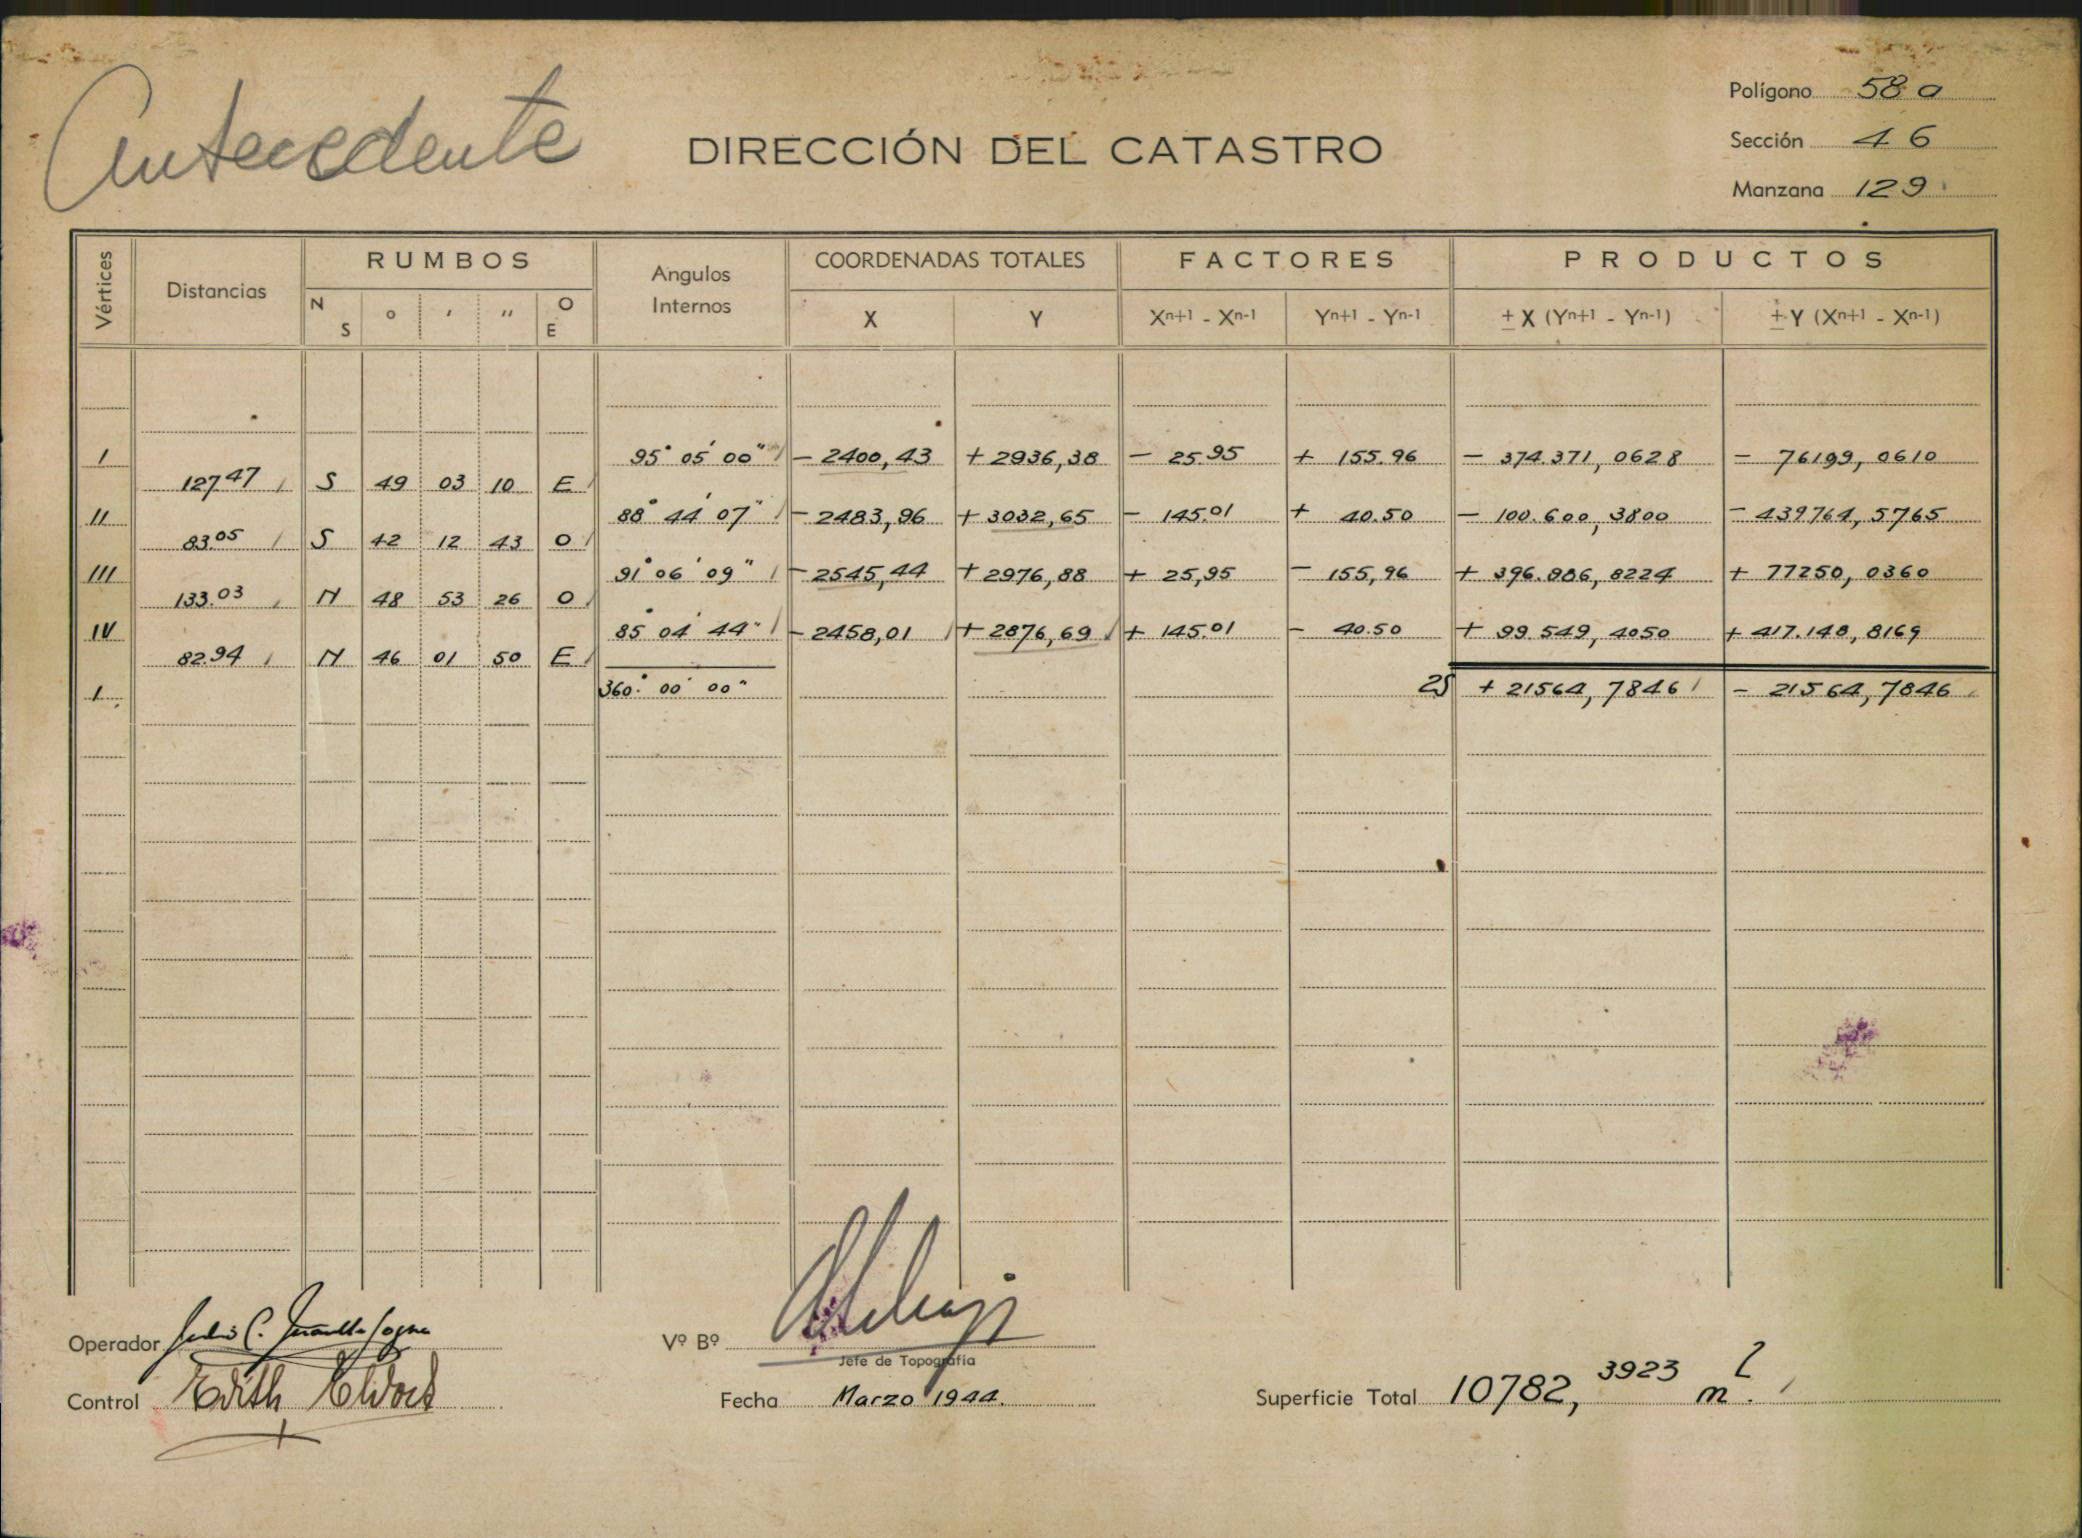 Antecedente
DIRECCIÓN DEL CATASTRO
Polígono 58 a
Sección 46
Manzana 129
Vértices Distancias RUMBOS Angulos Internos COORDENADAS TOTALES FACTORES PRODUCTOS
N S ° ' '' O E X Y Xn+1 - Xn-1 Yn+1 - Yn-1 ± X (Yn+1 - Yn-1) ± Y (Xn+1 - Xn-1)
I 95° 05' 00" - 2400,43 + 2936,38 - 25.95 + 155.96 - 374.371, 0628 - 76199, 0610
127.47 S 49 03 10 E
II 88° 44' 07" - 2483,96 + 3032,65 - 145.01 + 40.50 - 100.600, 3800 - 439764, 5765
83.05 S 42 12 43 O
III 91° 06' 09" - 2545,44 + 2976,88 + 25,95 - 155,96 + 396.986, 8224 + 77250, 0360
133.03 N 48 53 26 O
IV 85° 04' 44" - 2458,01 + 2876,69 + 145.01 - 40.50 + 99.549, 4050 + 417.148, 8169
82.94 N 46 01 50 E
I 360° 00' 00" 2S + 21564, 7846 - 21564, 7846
Operador
Vº Bº
Jefe de Topografía
Control Edith
Fecha Marzo 1944.
Superficie Total 10782, 3923 m².